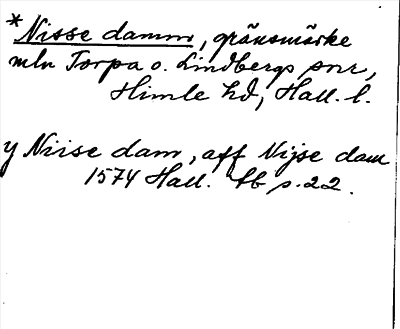 *Nisse damm, gränsmärke
mln Torpa o. Lindbergs snr,
Himle hd, Hall. l.
y Niise dam, aff Nijse dam
1574 Hall. tb s. 22.